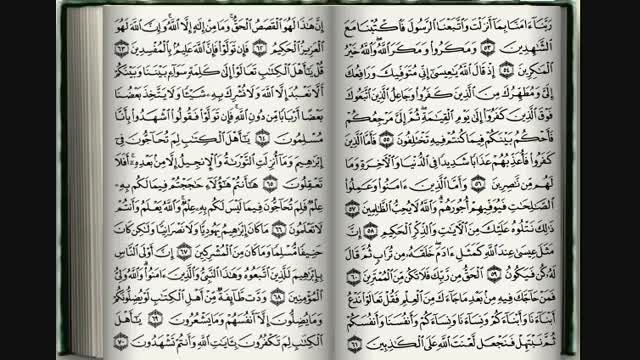 رَبَّنَآ ءَامَنَّا بِمَآ أَنزَلْتَ وَٱتَّبَعْنَا ٱلرَّسُولَ فَٱكْتُبْنَا مَعَ
ٱلشَّٰهِدِينَ ٥٣ وَمَكَرُوا۟ وَمَكَرَ ٱللَّهُ وَٱللَّهُ خَيْرُ
ٱلْمَٰكِرِينَ ٥٤ إِذْ قَالَ ٱللَّهُ يَٰعِيسَىٰٓ إِنِّى مُتَوَفِّيكَ وَرَافِعُكَ
إِلَىَّ وَمُطَهِّرُكَ مِنَ ٱلَّذِينَ كَفَرُوا۟ وَجَاعِلُ ٱلَّذِينَ ٱتَّبَعُوكَ
فَوْقَ ٱلَّذِينَ كَفَرُوٓا۟ إِلَىٰ يَوْمِ ٱلْقِيَٰمَةِ ثُمَّ إِلَىَّ مَرْجِعُكُمْ
فَأَحْكُمُ بَيْنَكُمْ فِيمَا كُنتُمْ فِيهِ تَخْتَلِفُونَ ٥٥ فَأَمَّا ٱلَّذِينَ
كَفَرُوا۟ فَأُعَذِّبُهُمْ عَذَابًا شَدِيدًا فِى ٱلدُّنْيَا وَٱلْءَاخِرَةِ وَمَا
لَهُم مِّن نَّٰصِرِينَ ٥٦ وَأَمَّا ٱلَّذِينَ ءَامَنُوا۟ وَعَمِلُوا۟
ٱلصَّٰلِحَٰتِ فَيُوَفِّيهِمْ أُجُورَهُمْ وَٱللَّهُ لَا يُحِبُّ ٱلظَّٰلِمِينَ ٥٧
ذَٰلِكَ نَتْلُوهُ عَلَيْكَ مِنَ ٱلْءَايَٰتِ وَٱلذِّكْرِ ٱلْحَكِيمِ ٥٨ إِنَّ
مَثَلَ عِيسَىٰ عِندَ ٱللَّهِ كَمَثَلِ ءَادَمَ خَلَقَهُۥ مِن تُرَابٍ ثُمَّ قَالَ
لَهُۥ كُن فَيَكُونُ ٥٩ ٱلْحَقُّ مِن رَّبِّكَ فَلَا تَكُن مِّنَ ٱلْمُمْتَرِينَ ٦٠
فَمَنْ حَآجَّكَ فِيهِ مِنۢ بَعْدِ مَا جَآءَكَ مِنَ ٱلْعِلْمِ فَقُلْ تَعَالَوْا۟ نَدْعُ
أَبْنَآءَنَا وَأَبْنَآءَكُمْ وَنِسَآءَنَا وَنِسَآءَكُمْ وَأَنفُسَنَا وَأَنفُسَكُمْ
ثُمَّ نَبْتَهِلْ فَنَجْعَل لَّعْنَتَ ٱللَّهِ عَلَى ٱلْكَٰذِبِينَ ٦١
إِنَّ هَٰذَا لَهُوَ ٱلْقَصَصُ ٱلْحَقُّ وَمَا مِنْ إِلَٰهٍ إِلَّا ٱللَّهُ وَإِنَّ ٱللَّهَ لَهُوَ
ٱلْعَزِيزُ ٱلْحَكِيمُ ٦٢ فَإِن تَوَلَّوْا۟ فَإِنَّ ٱللَّهَ عَلِيمٌۢ بِٱلْمُفْسِدِينَ ٦٣
قُلْ يَٰٓأَهْلَ ٱلْكِتَٰبِ تَعَالَوْا۟ إِلَىٰ كَلِمَةٍ سَوَآءٍۭ بَيْنَنَا وَبَيْنَكُمْ
أَلَّا نَعْبُدَ إِلَّا ٱللَّهَ وَلَا نُشْرِكَ بِهِۦ شَيْـًٔا وَلَا يَتَّخِذَ بَعْضُنَا
بَعْضًا أَرْبَابًا مِّن دُونِ ٱللَّهِ فَإِن تَوَلَّوْا۟ فَقُولُوا۟ ٱشْهَدُوا۟ بِأَنَّا
مُسْلِمُونَ ٦٤ يَٰٓأَهْلَ ٱلْكِتَٰبِ لِمَ تُحَآجُّونَ فِىٓ
إِبْرَٰهِيمَ وَمَآ أُنزِلَتِ ٱلتَّوْرَىٰةُ وَٱلْإِنجِيلُ إِلَّا مِنۢ بَعْدِهِۦٓ أَفَلَا
تَعْقِلُونَ ٦٥ هَٰٓأَنتُمْ هَٰٓؤُلَآءِ حَٰجَجْتُمْ فِيمَا لَكُم بِهِۦ
عِلْمٌ فَلِمَ تُحَآجُّونَ فِيمَا لَيْسَ لَكُم بِهِۦ عِلْمٌ وَٱللَّهُ يَعْلَمُ وَأَنتُمْ
لَا تَعْلَمُونَ ٦٦ مَا كَانَ إِبْرَٰهِيمُ يَهُودِيًّا وَلَا نَصْرَانِيًّا وَلَٰكِن كَانَ
حَنِيفًا مُّسْلِمًا وَمَا كَانَ مِنَ ٱلْمُشْرِكِينَ ٦٧ إِنَّ أَوْلَى ٱلنَّاسِ
بِإِبْرَٰهِيمَ لَلَّذِينَ ٱتَّبَعُوهُ وَهَٰذَا ٱلنَّبِىُّ وَٱلَّذِينَ ءَامَنُوا۟ وَٱللَّهُ وَلِىُّ
ٱلْمُؤْمِنِينَ ٦٨ وَدَّت طَّآئِفَةٌ مِّنْ أَهْلِ ٱلْكِتَٰبِ لَوْ يُضِلُّونَكُمْ
وَمَا يُضِلُّونَ إِلَّآ أَنفُسَهُمْ وَمَا يَشْعُرُونَ ٦٩ يَٰٓأَهْلَ
ٱلْكِتَٰبِ لِمَ تَكْفُرُونَ بِـَٔايَٰتِ ٱللَّهِ وَأَنتُمْ تَشْهَدُونَ ٧٠